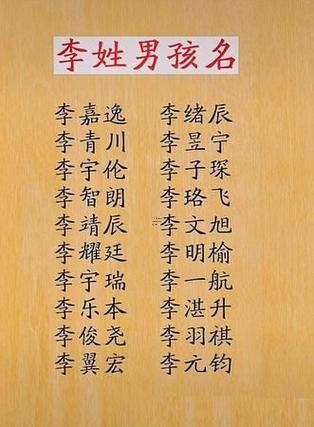 李姓男孩名
李嘉逸 李绪辰
李青川 李昱宁
李宇伦 李子琛
李智朗 李珞飞
李靖辰 李文旭
李耀廷 李明榆
李宇瑞 李一航
李乐本 李湛升
李俊尧 李羽祺
李翼宏 李元钧